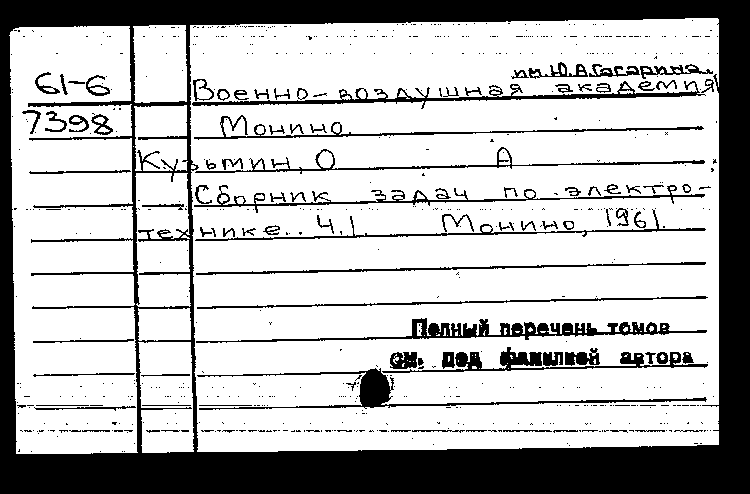 им. Ю.А.Гагарина.
61-6 Военно-воздушная академия
7398 Монино.
Кузьмин, О А
Сборник задач по электро-
технике.. Ч.1. Монино, 1961.
Полный перечень томов
см. под фамилией автора